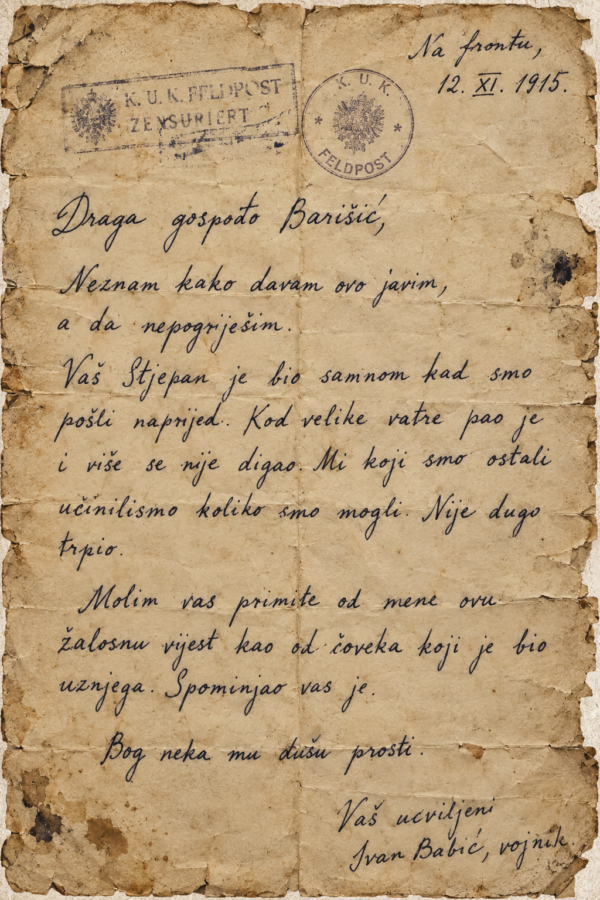 Na frontu,
12. XI. 1915.
K. U. K. FELDPOST
ZENSURIERT
K. U. K.
FELDPOST
Draga gospođo Barišić,
Neznam kako davam ovo javim,
a da nepogriješim.
Vaš Stjepan je bio samnom kad smo
pošli naprijed. Kod velike vatre pao je
i više se nije digao. Mi koji smo ostali
učinilismo koliko smo mogli. Nije dugo
trpio.
Molim vas primite od mene ovu
žalosnu vijest kao od čoveka koji je bio
uznjega. Spominjao vas je.
Bog neka mu dušu prosti.
Vaš ucviljeni
Ivan Babić, vojnik